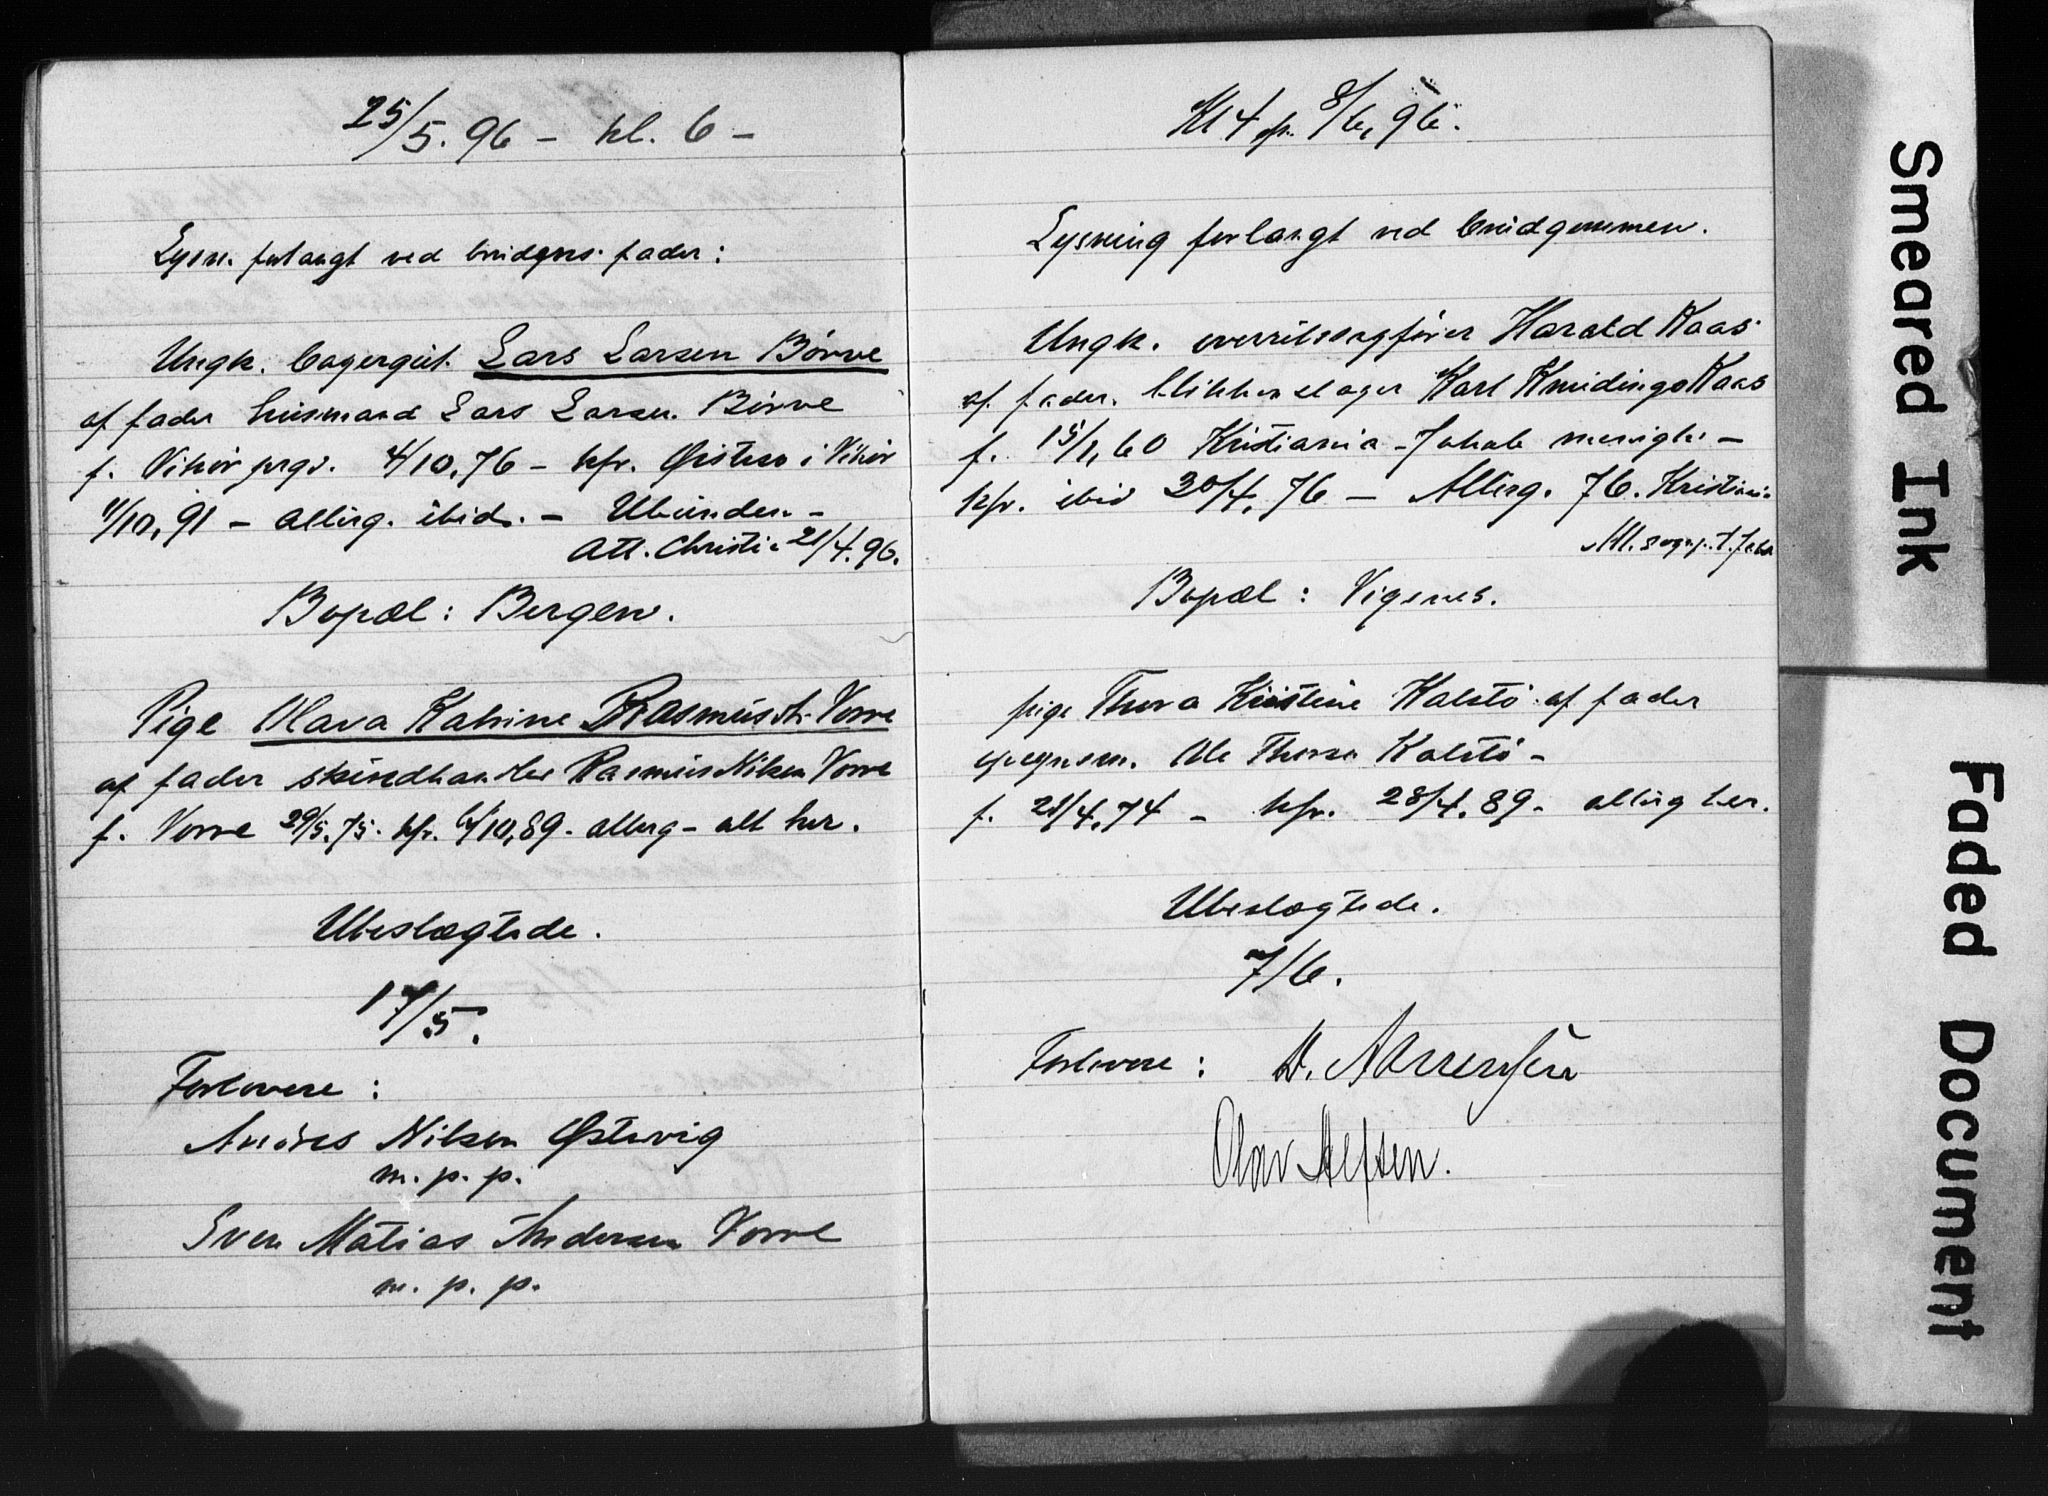 25/5.96 – kl. 6 –
Lysn. forlangt ved brudgms. fader:
Ungk. bagergut. Lars Larsen Børve
af fader husmand Lars Larsen Børve
f. Vikør prgj. 4/10,76 – kfr. Øistese i Vikør
11/10,91 – allerg. ibid. – Ubunden –
Att. Christi 21/4.96.
Bopæl: Bergen.
Pige Olava Katrine Rasmusdtr. Vorre
af fader skindhandler Rasmus Nilsen Vorre
f. Vorre 29/5.75. kfr. 6/10,89 – allerg – alt her.
Ubeslægtede.
17/5.
Forlovere:
Andres Nilsen Østervig
m. p. p.
Sven Matias Andersen Vorre
m. p. p.
Kl 4 8/6, 96.
Lysning forlangt ved brudgommen.
Ungk. overretssagfører Harald Kaas
af fader. blikkenslager Karl Knudinge Kaas
f. 15/1,60 Kristiania – Jakob menigh. –
kfr. ibid 30/4,76 – Allerg. 76. Kristiania
Bopæl: Vigenes.
pige Thora Kristine Kalstø af fader
Ole Thorsen Kalstø –
f. 21/4,74 – kfr. 28/4,89 – allerg her.
Ubeslægtede.
7/6.
Forlovere:
Olav Alfsen.
Smeared Ink
Faded Document